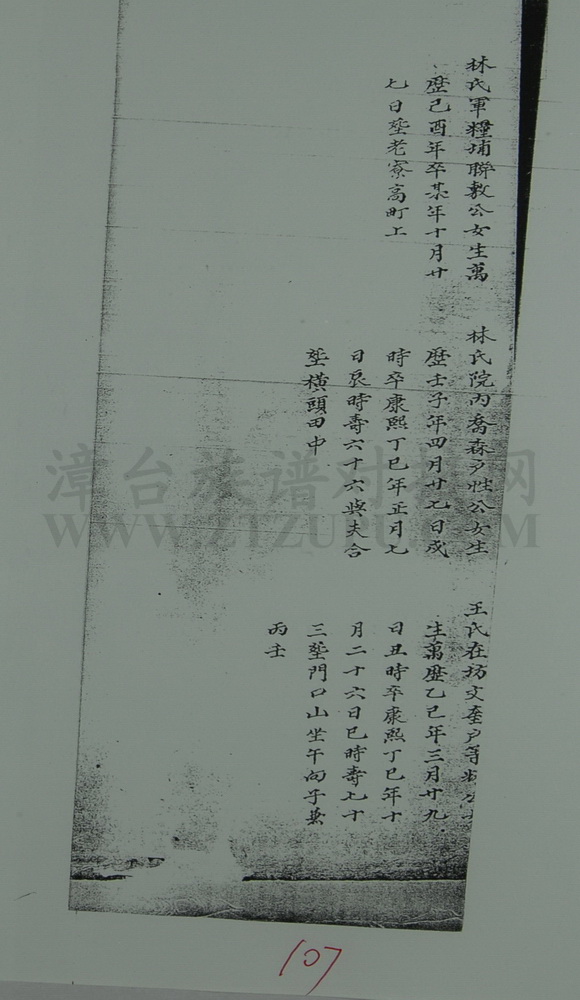 林氏軍糧埔聯敷公女生萬
歷己酉年卒某年十月廿
七日塟老寮高町上
林氏院内喬森戶性公女生
歷壬子年四月廿七日戌
時卒康熙丁巳年正月七
日辰時壽六十六與夫合
塟橫頭田中
王氏在坊文奎戶等
生萬歷乙巳年三月廿九
日丑時卒康熙丁巳年十
月二十六日巳時壽七十
三塟門口山坐午向子兼
丙壬
漳台族谱对接网
WWW.ZTZUPU.COM
107